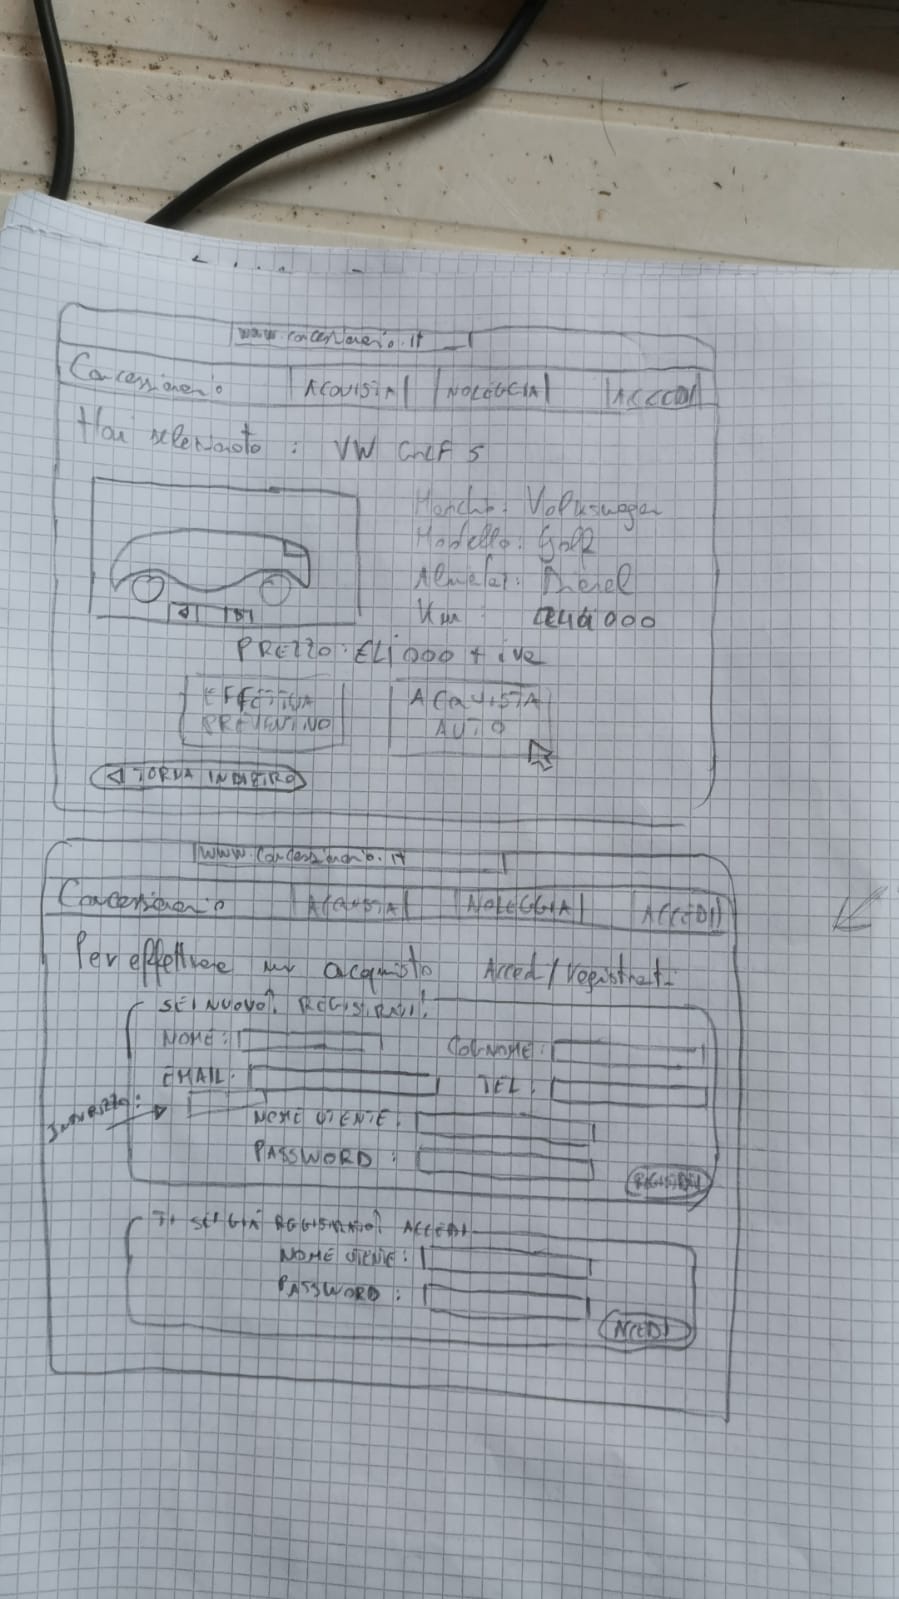 www.concessionario.it
Concessionario ACQUISTA NOLEGGIA ACCEDI
Hai selezionato : VW GOLF 5
Marchio: Volkswagen
Modello: Golf
Diesel
Km :
PREZZO: + iva
EFFETTUA
PREVENTIVO
ACQUISTA
AUTO
TORNA INDIETRO
www.concessionario.it
Concessionario ACQUISTA NOLEGGIA ACCEDI
Per effettuare un acquisto Accedi/registrati
SEI NUOVO? REGISTRATI!
NOME: COGNOME:
EMAIL: TEL:
INDIRIZZO:
NOME UTENTE:
PASSWORD :
REGISTRATI
TI SEI GIÀ REGISTRATO? ACCEDI
NOME UTENTE:
PASSWORD :
ACCEDI